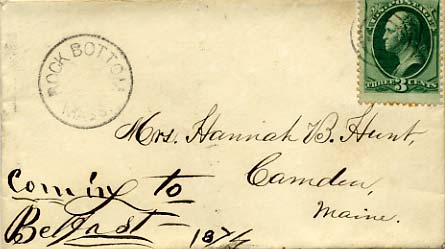 U.S. POSTAGE
THREE 3 CENTS
ROCK BOTTOM
MASS.
Mrs. Hannah B. Hunt,
Camden,
Maine.
Coming to
Belfast –